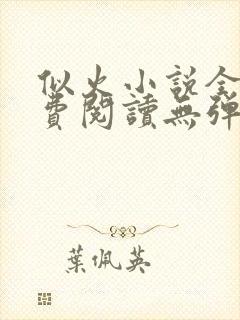 似火小說全
費閱讀無彈
葉佩英